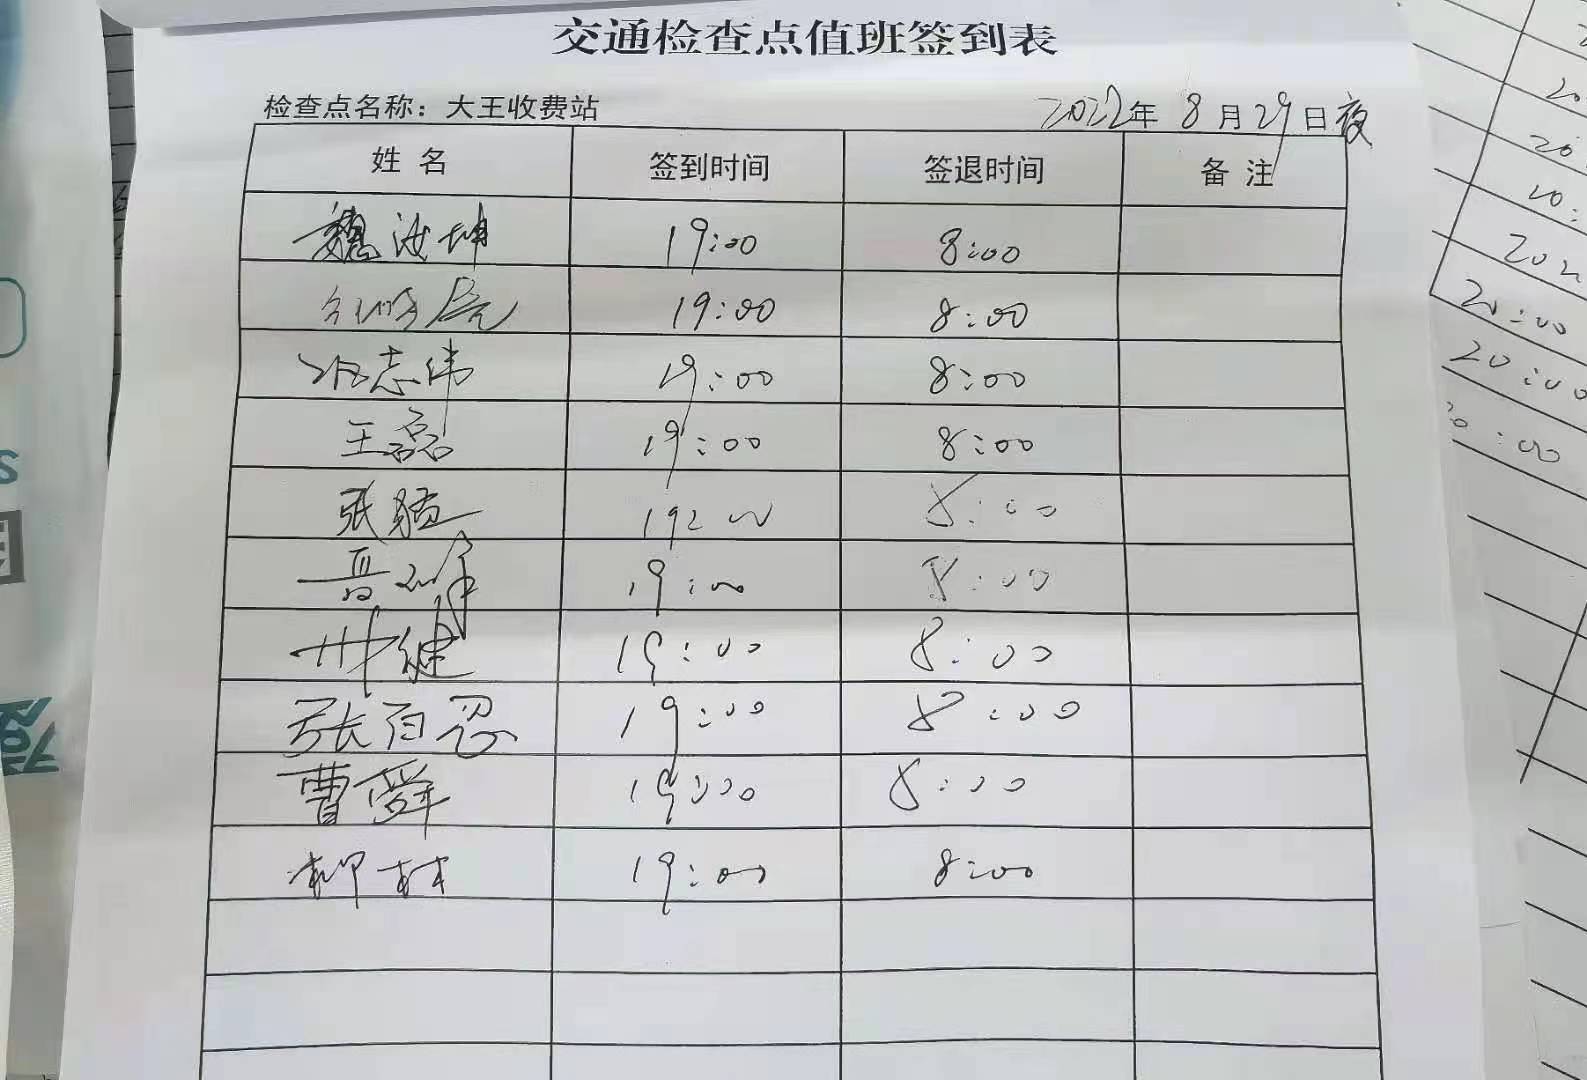 交通检查点值班签到表
检查点名称：大王收费站 2022年 8月29日夜
姓名 签到时间 签退时间 备注
魏汝坤 19:00 8:00
19:00 8:00
志伟 19:00 8:00
王磊 19:00 8:00
张 8:00
19:00 8:00
健 19:00 8:00
张百忍 19:00 8:00
曹舜 19:00 8:00
柳林 19:00 8:00
20:00
20:00
:00